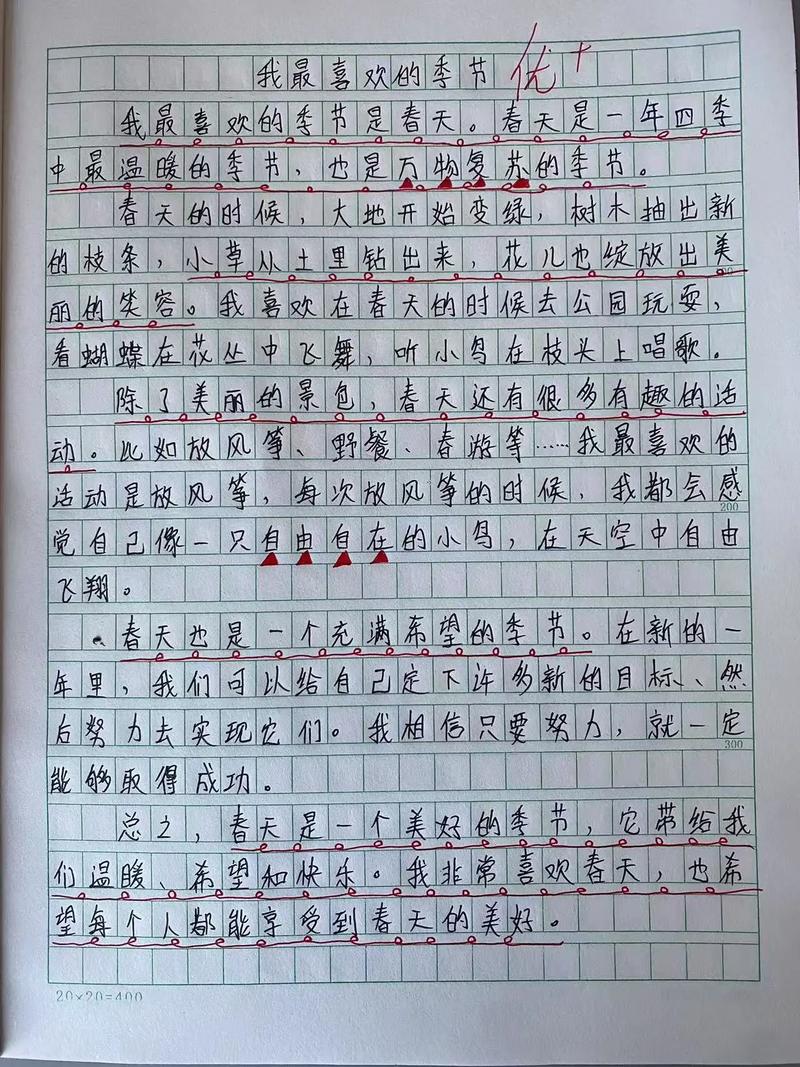 我最喜欢的季节 优+
我最喜欢的季节是春天。春天是一年四季
中最温暖的季节，也是万物复苏的季节。
春天的时候，大地开始变绿，树木抽出新
的枝条，小草从土里钻出来，花儿也绽放出美
丽的笑容。我喜欢在春天的时候去公园玩耍，
看蝴蝶在花丛中飞舞，听小鸟在枝头上唱歌。
除了美丽的景色，春天还有很多有趣的活
动。比如放风筝、野餐、春游等……我最喜欢的
活动是放风筝，每次放风筝的时候，我都会感
200
觉自己像一只自由自在的小鸟，在天空中自由
飞翔。
春天也是一个充满希望的季节。在新的一
年里，我们可以给自己定下许多新的目标、然
后努力去实现它们。我相信只要努力，就一定
300
能够取得成功。
总之，春天是一个美好的季节，它带给我
们温暖、希望和快乐。我非常喜欢春天，也希
望每个人都能享受到春天的美好。
20×20=400